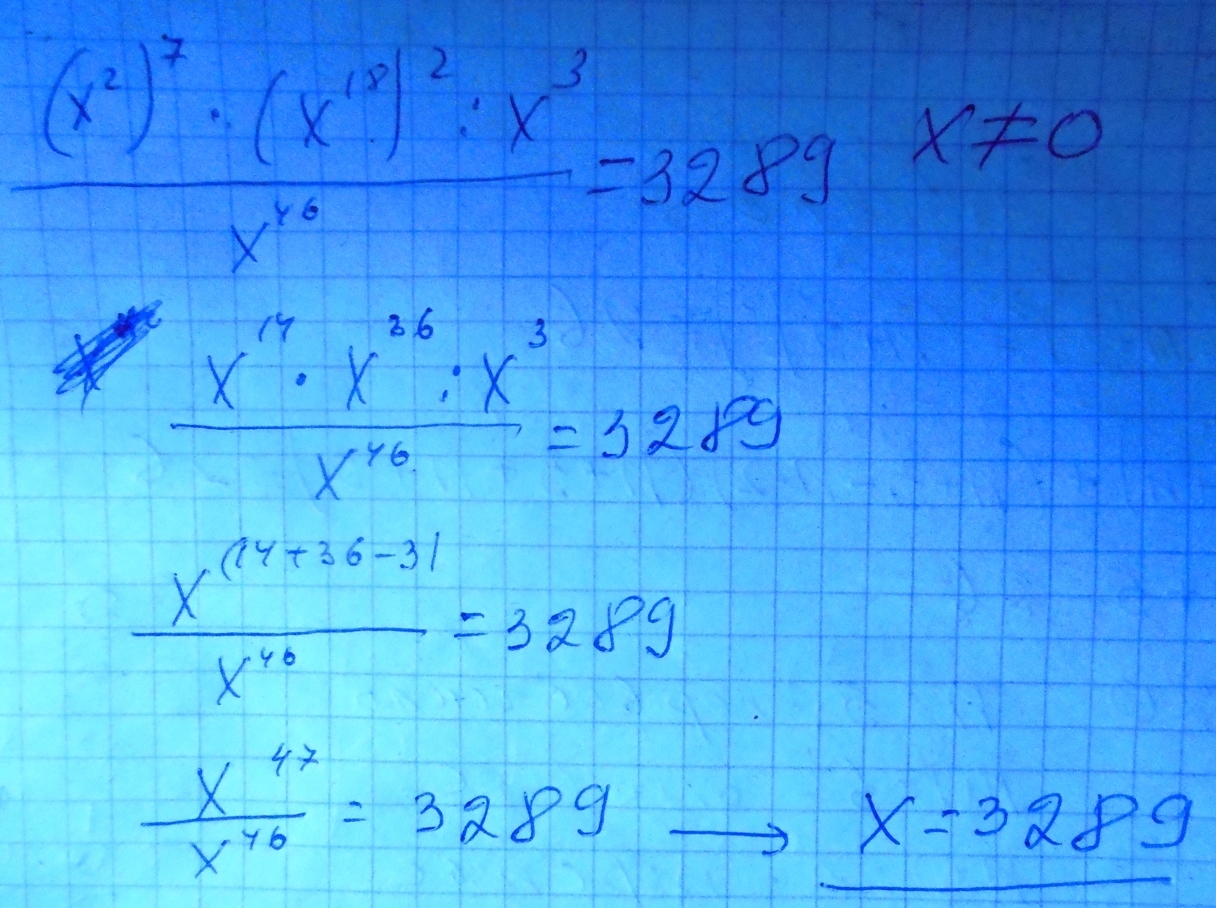 (x²)⁷ · (x¹⁸)² : x³ / x⁴⁶ = 3289 x ≠ 0
x¹⁴ · x³⁶ : x³ / x⁴⁶ = 3289
x⁽¹⁴⁺³⁶⁻³⁾ / x⁴⁶ = 3289
x⁴⁷ / x⁴⁶ = 3289 → x = 3289